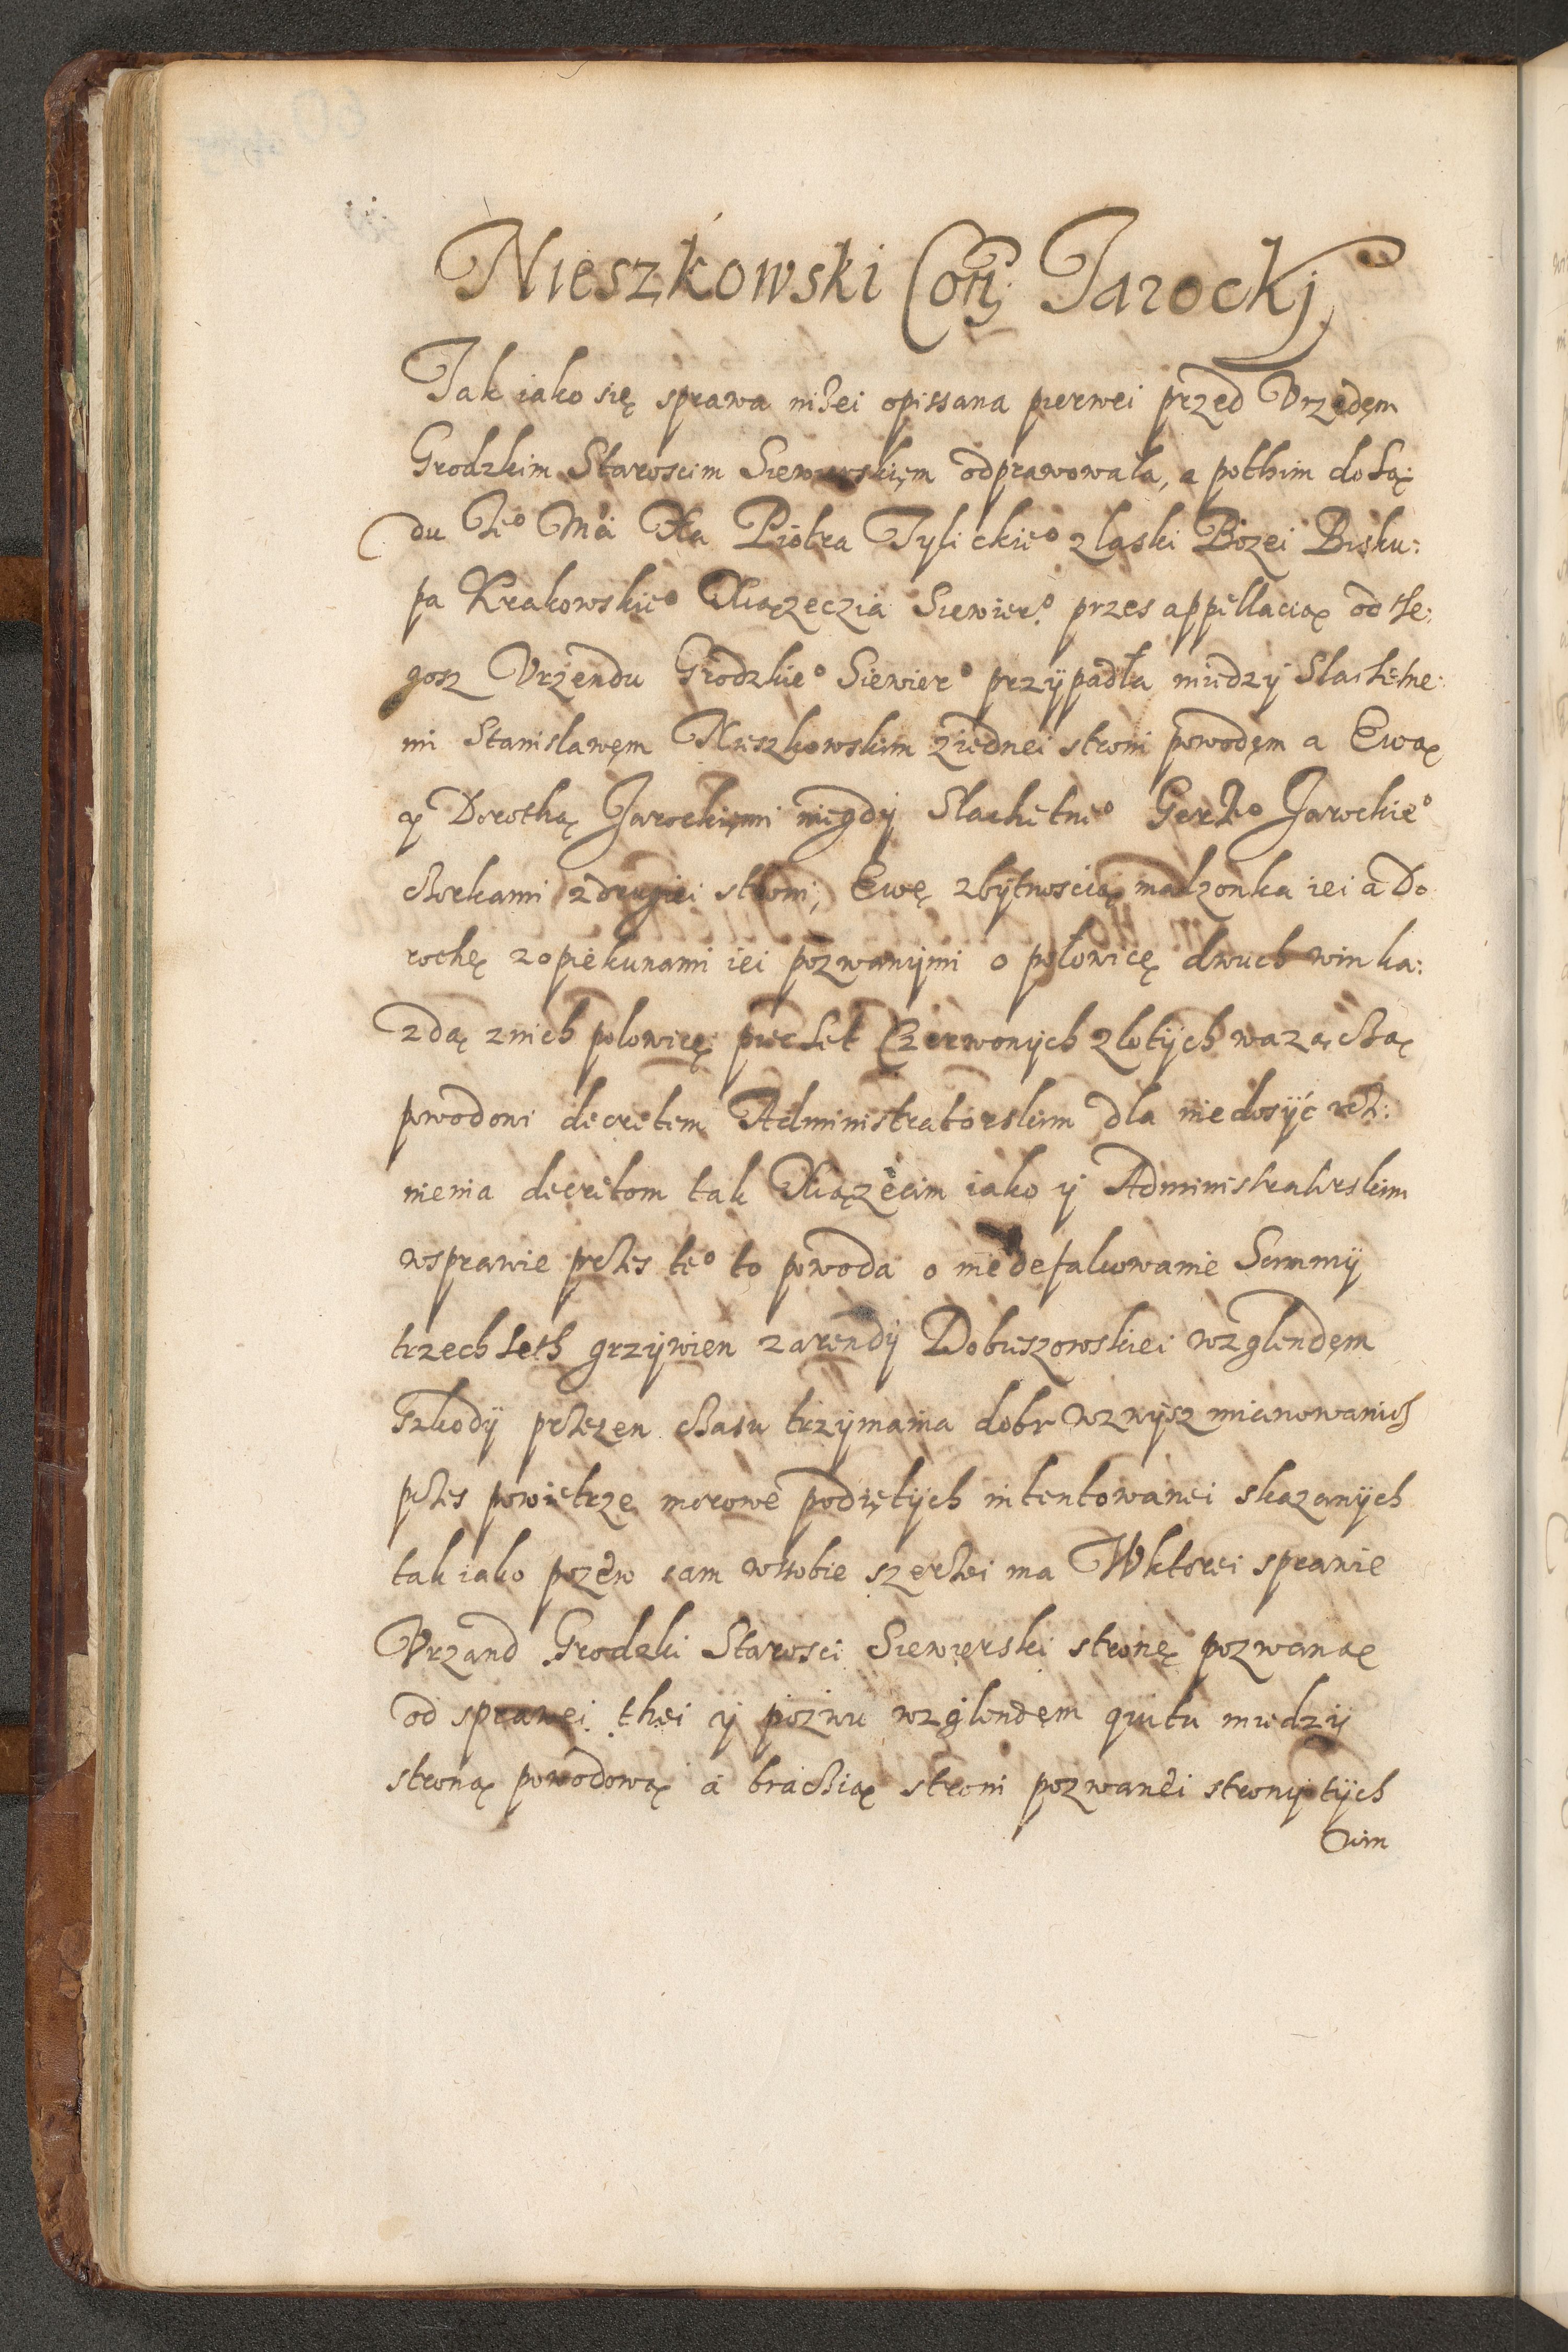 Nieszkowski Con: Jarockj
Tak iako się sprawa niżei opissana pierwei przed Vrzędęm
Grodzkim Staroscim Siewierskięm odprawowała, a pothim do Są:
du Je° Mći Xa Piotra Tylickie° z laski Bożei Bisku:
pa Krakowskie° Xiązęczia Siewier° przes appellacią od te:
gosz Vrzendu Grodzkie° Siewier° przÿpadła miedzÿ Slachetne:
mi Stanislawęm Nieszkowskim z iednei stroni powodęm a Ewą
ÿ Dorothą Jarockięmi niegdÿ Slachetne° Jarockie°
chorkami z drugiei stroni, Ewę z bÿtnoscią malzonka iei a Do
rothę z opiekunami iei pozwanÿmi o polowicę dwuch win ka:
zdą z nich polowicę pięcset Czerwonÿch zlotÿch waząchą
powodoni decretem Administratorskim dla niedosÿć vcz:
nienia decretom tak Xiązęcim iako ÿ Administratorskim
w sprawie przes te° to powoda o niedefalcowanie Summÿ
trzech seth grzÿwien z arendÿ Dobuszowskiei wzglendęm
szkodÿ przezen czasu trzÿmania dobr wzwÿsz mianowanich
przes powietrze morowe podiętÿch intentowanei skazanÿch
tak iako pozew sam w sobie szerzei ma W ktorei sprawie
Vrzand Grodzki Starosci Siewierski stronę pozwaną
od sprawei thei ÿ pozwu wzglendęm quitu miedzÿ
stroną powodową a brachią stroni pozwanei stronÿ tÿch
win